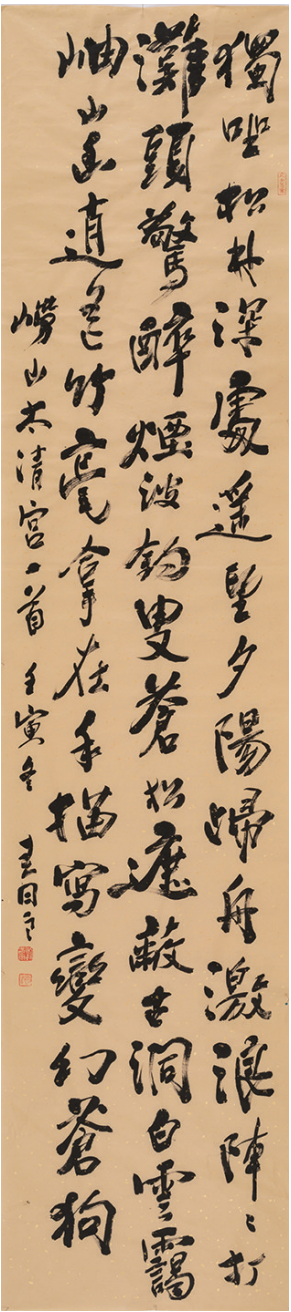 獨坐松林深處遥望夕陽歸舟激浪陣々打
灘頭驚醉煙波釣叟蒼松遮蔽古洞白雲靄
岫山幽逍遥竹毫拿在手描寫變幻蒼狗
嶗山太清宮一首 壬寅冬